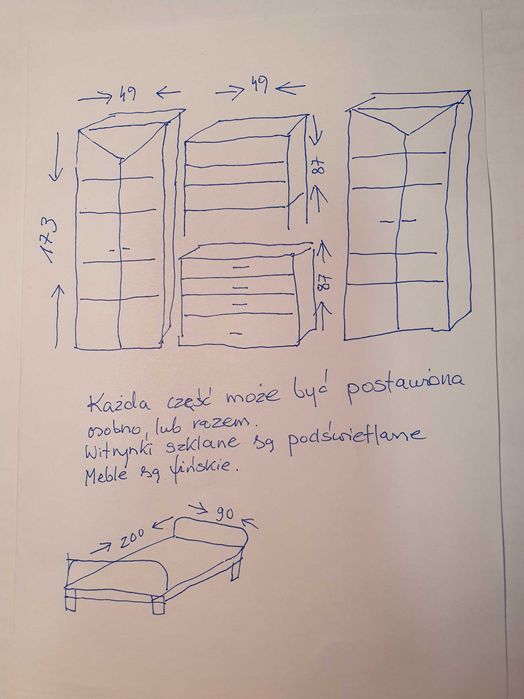 49
49
173
87
87
Każda część może być postawiona
osobno, lub razem.
Witrynki szklane są podświetlane
Meble są fińskie.
200
90